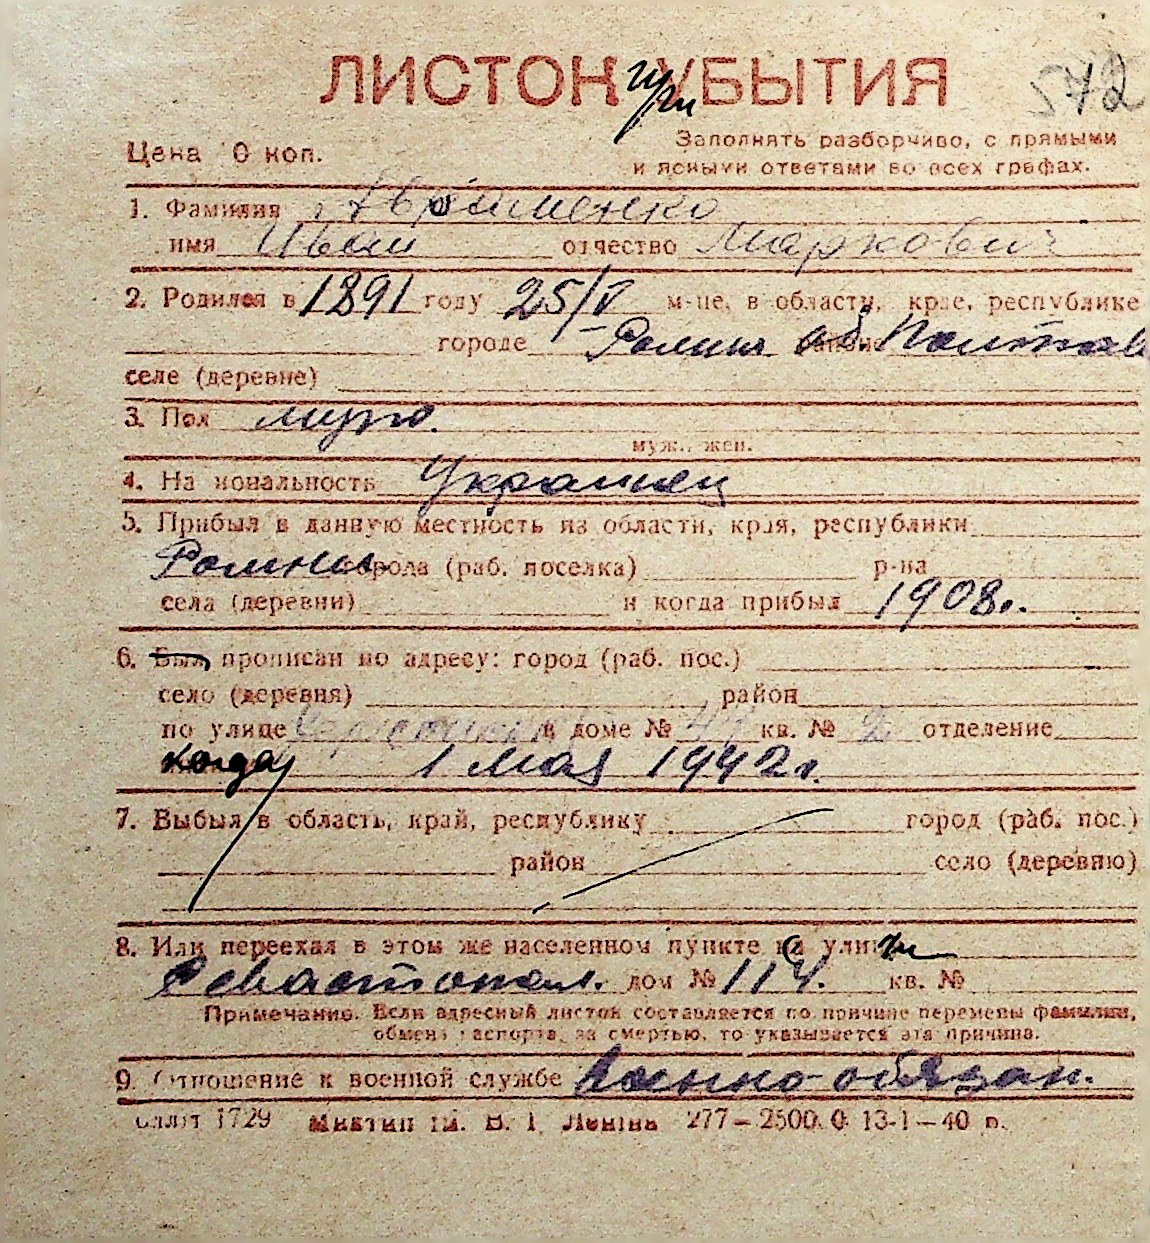 ЛИСТОК УБЫТИЯ 572
Цена 0 коп. Заполнять разборчиво, с прямыми
и ясными ответами во всех графах.
1. Фамилия Авраменко
имя Иван отчество Маркович
2. Родился в 1891 году 25/V м-це, в области, крае, республике
городе Ромны об. Полтав
селе (деревне)
3. Пол муж.
муж., жен.
4. Национальность Украинец
5. Прибыл в данную местность из области, края, республики
Ромны города (раб. поселка) р-на
села (деревни) и когда прибыл 1908г.
6. Был прописан по адресу: город (раб. пос.)
село (деревня) район
по улице в доме № 47 кв. № 2 отделение
когда 1 мая 1942 г.
7. Выбыл в область, край, республику город (раб. пос.)
район село (деревню)
8. Или переехал в этом же населенном пункте на улицу
Севастопол. дом № 114. кв. №
Примечание. Если адресный листок составляется по причине перемены фамилии,
обмена паспорта, за смертью, то указывается эта причина.
9. Отношение к военной службе Военно-обязан.
1729 Миктип ім. В. І. Леніна 277–2500. 0 13-1–40 п.